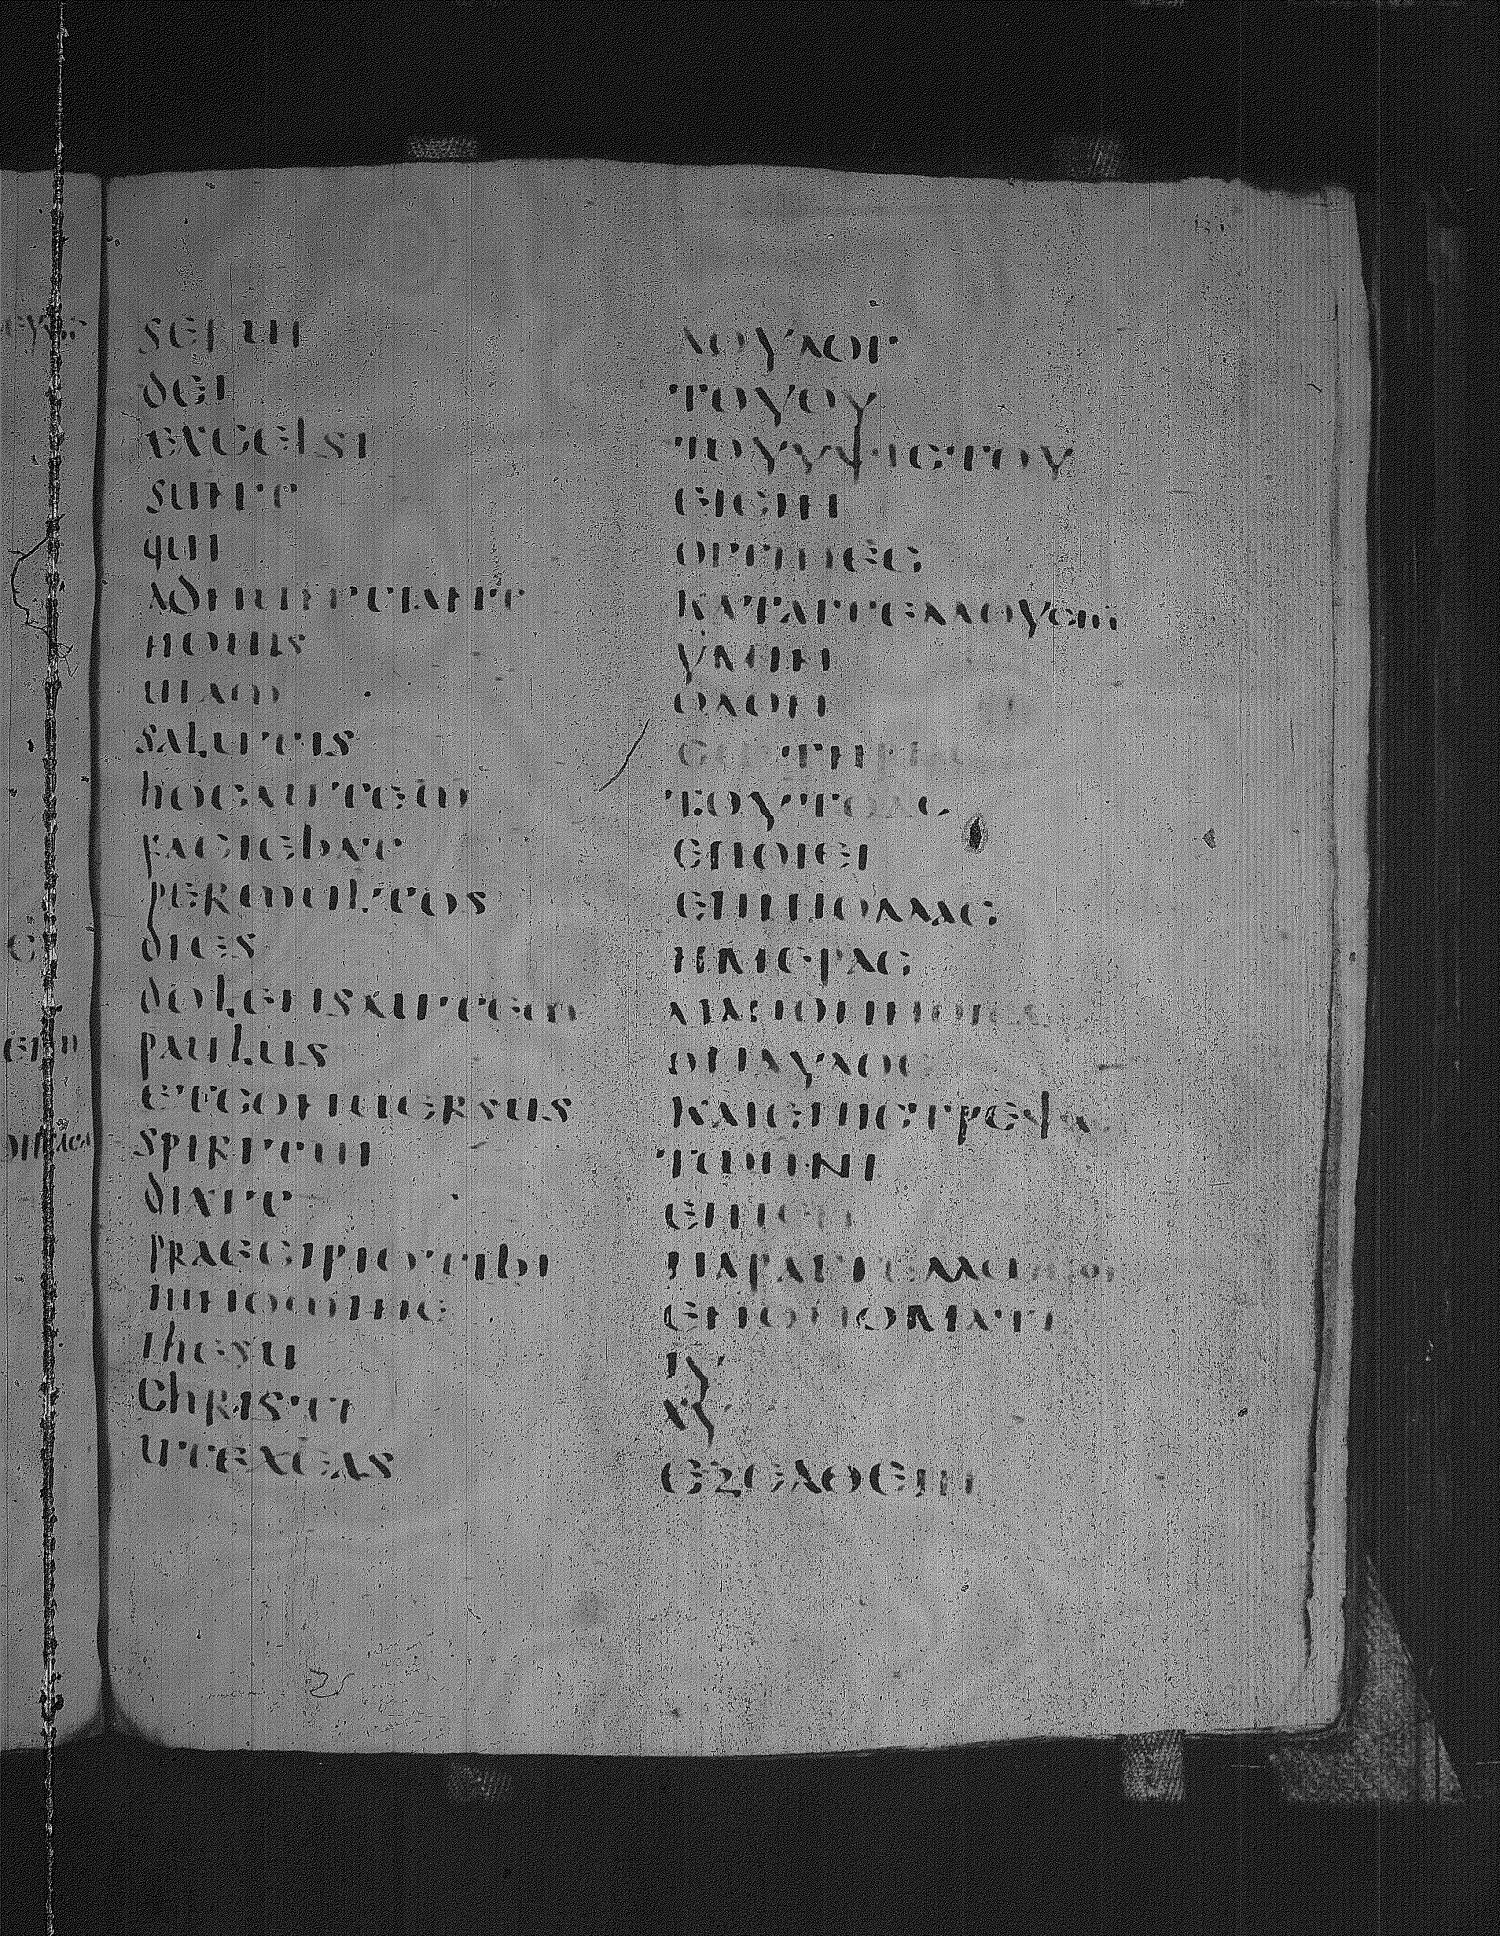 serui
dei
excelsi
sunt
qui
adnuntiant
nobis
uiam
salutis
hoc autem
faciebat
per multos
dies
dolens autem
paulus
et conuersus
spiritui
dixit
praecipio tibi
in nomine
ihesu
christi
ut exeas
ΔΟΥΛΟΙ
ΤΟΥΘΥ
ΤΟΥΥΨΙCΤΟΥ
ΕΙCΙΝ
ΟΙΤΙΝΕC
ΚΑΤΑΓΓΕΛΛΟΥCΙΝ
ΥΜΙΝ
ΟΔΟΝ
CΩΤΗΡΙΑC
ΤΟΥΤΟΔΕ
ΕΠΟΙΕΙ
ΕΠΙΠΟΛΛΑC
ΗΜΕΡΑC
ΔΙΑΠΟΝΗΘΕΙC
ΟΠΑΥΛΟC
ΚΑΙΕΠΙCΤΡΕΨΑC
ΤΩΠΝΙ
ΕΙΠΕΝ
ΠΑΡΑΓΓΕΛΛΩCΟΙ
ΕΝΟΝΟΜΑΤΙ
ΙΥ
ΧΥ
ΕΞΕΛΘΕΙΝ